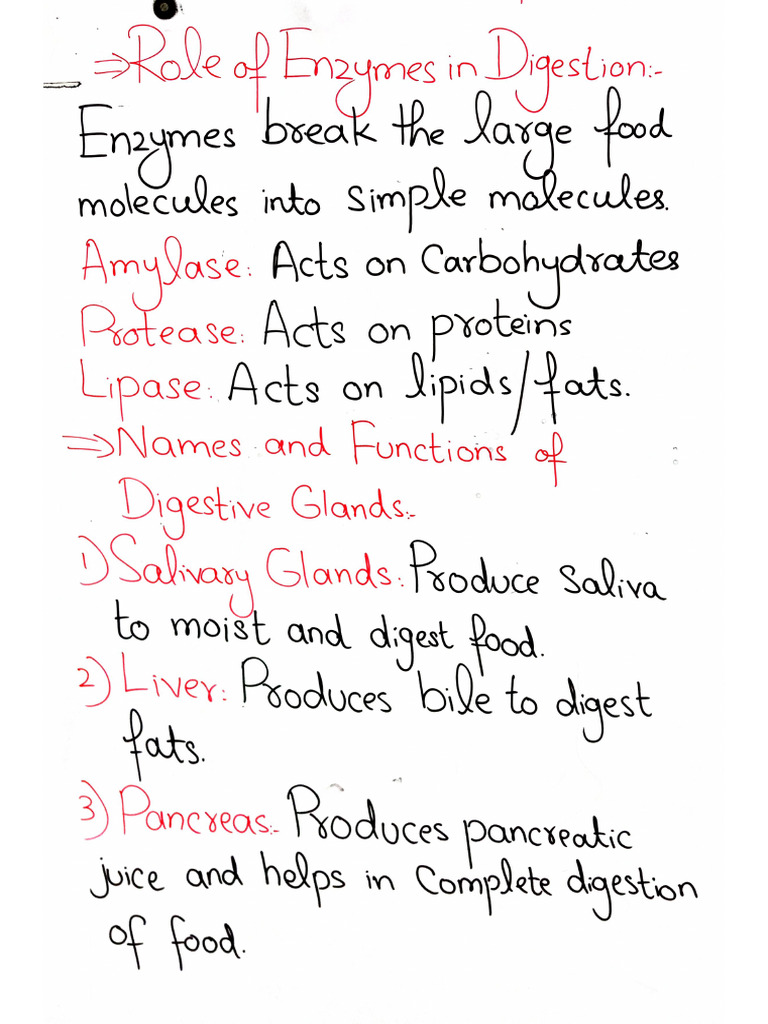 ⇒Role of Enzymes in Digestion:-
Enzymes break the large food
molecules into simple molecules.
Amylase: Acts on Carbohydrates
Protease: Acts on proteins
Lipase: Acts on lipids/fats.
⇒Names and Functions of
Digestive Glands:-
1) Salivary Glands: Produce saliva
to moist and digest food.
2) Liver: Produces bile to digest
fats.
3) Pancreas:- Produces pancreatic
juice and helps in complete digestion
of food.